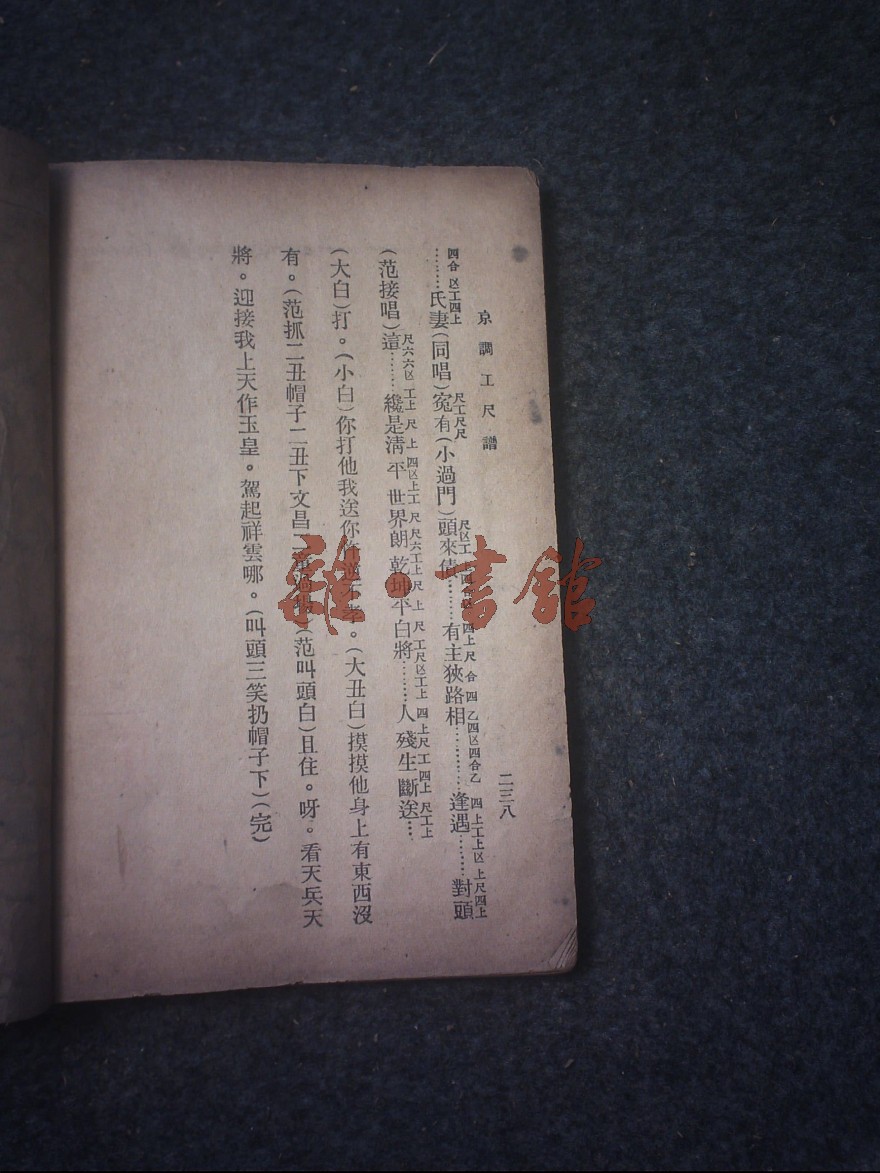 京調工尺譜
二三八
四合 区工四上 尺工尺尺 尺区工 四上 尺 合 四 乙四区四合乙 四 上工上区 上尺四上
………氏妻(同唱)冤有(小過門)頭來債………有主狹路相………逢遇………對頭
尺六六区 工上 尺 上 四区上工 尺 尺六工上 尺 上 尺 工尺区工上 四上尺工四上 尺工上
(范接唱)這……纔是淸平世界朗乾坤平白將………人殘生斷送…
(大白)打。(小白)你打他我送你(大丑白)摸摸他身上有東西沒
有。(范抓二丑帽子二丑下文昌(范叫頭白)且住。呀。看天兵天
將。迎接我上天作玉皇。駕起祥雲哪。(叫頭三笑扔帽子下)(完)
雜·書館